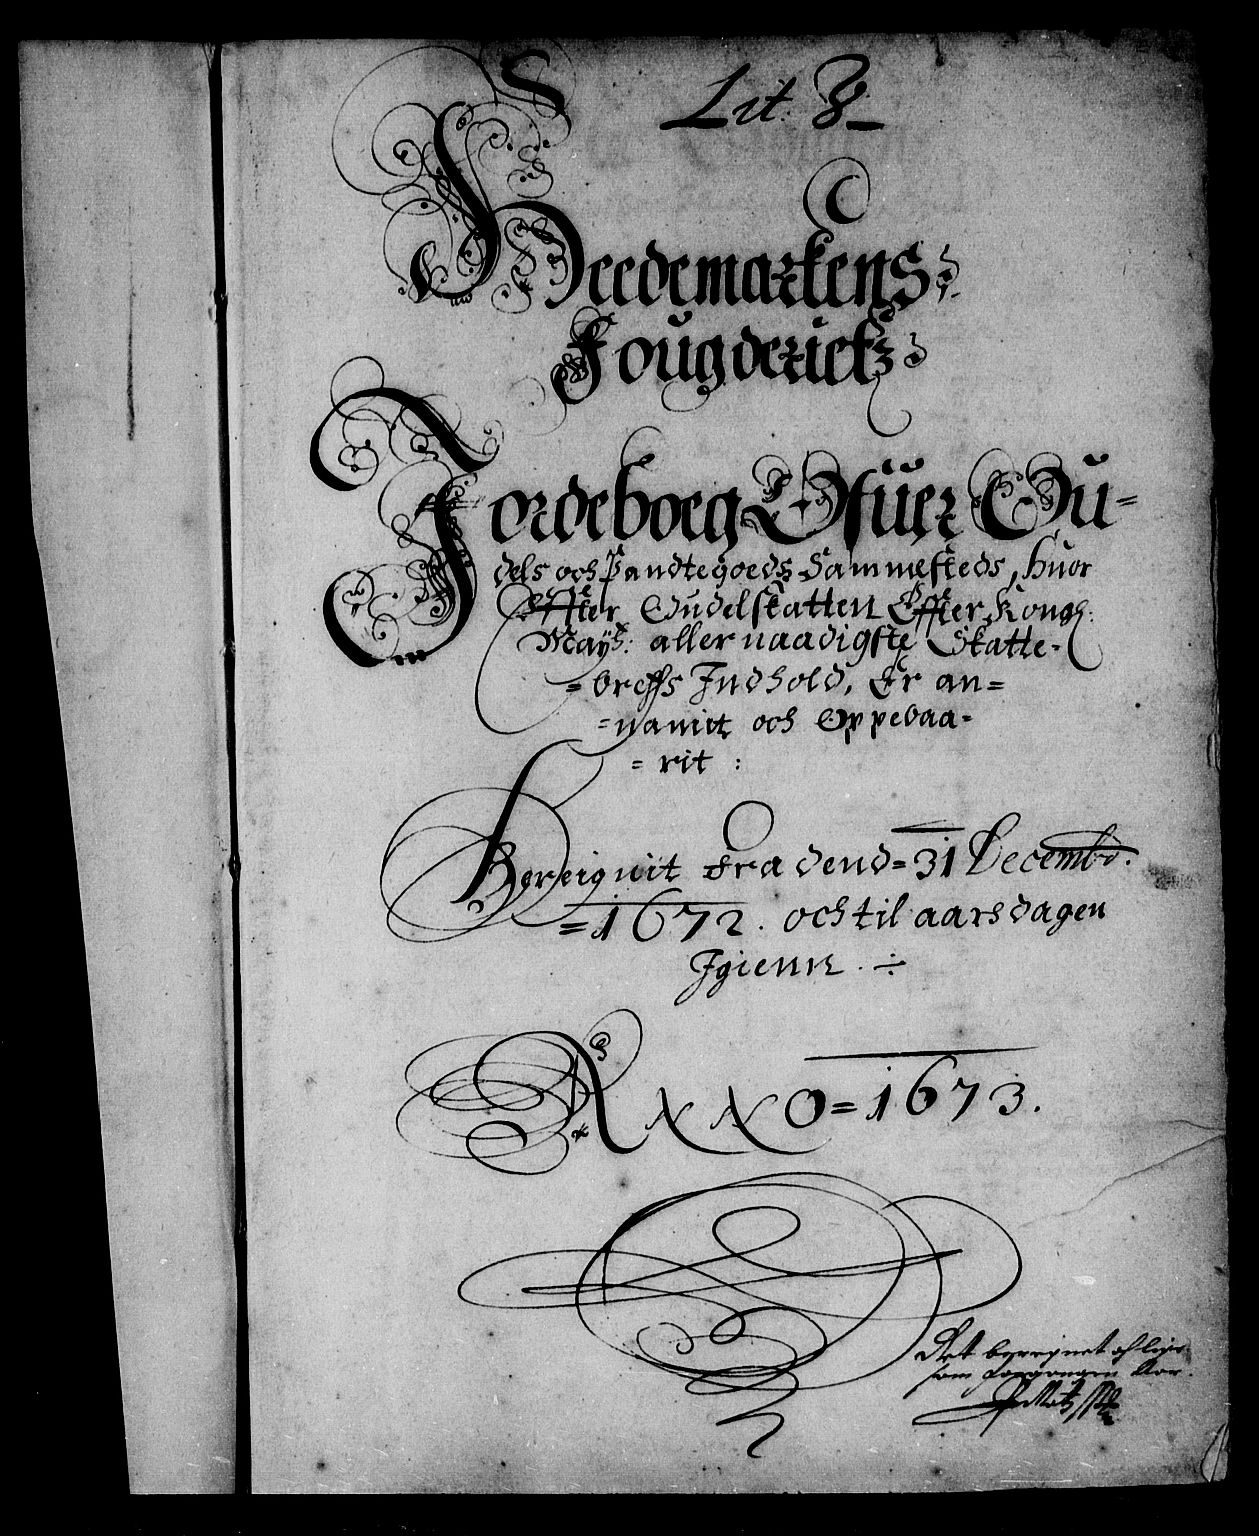 Lit. B
Heedemarkens
Fougderie
Jordeboeg Ofuer Ou-
dels och Pandtegoeds Sammesteds, Huor
Effter Oudelskatten Effter Kongl:
Mayts: aller naadigste Skatte-
= breffs Indhold, Er an=
=namit och Oppebaa-
= rit :
Bereignit fra dend = 31 Decembr.
= 1672. och til aarsdagen
Igienn. ÷
Anno = 1673.
Det beregnet
som Kor.